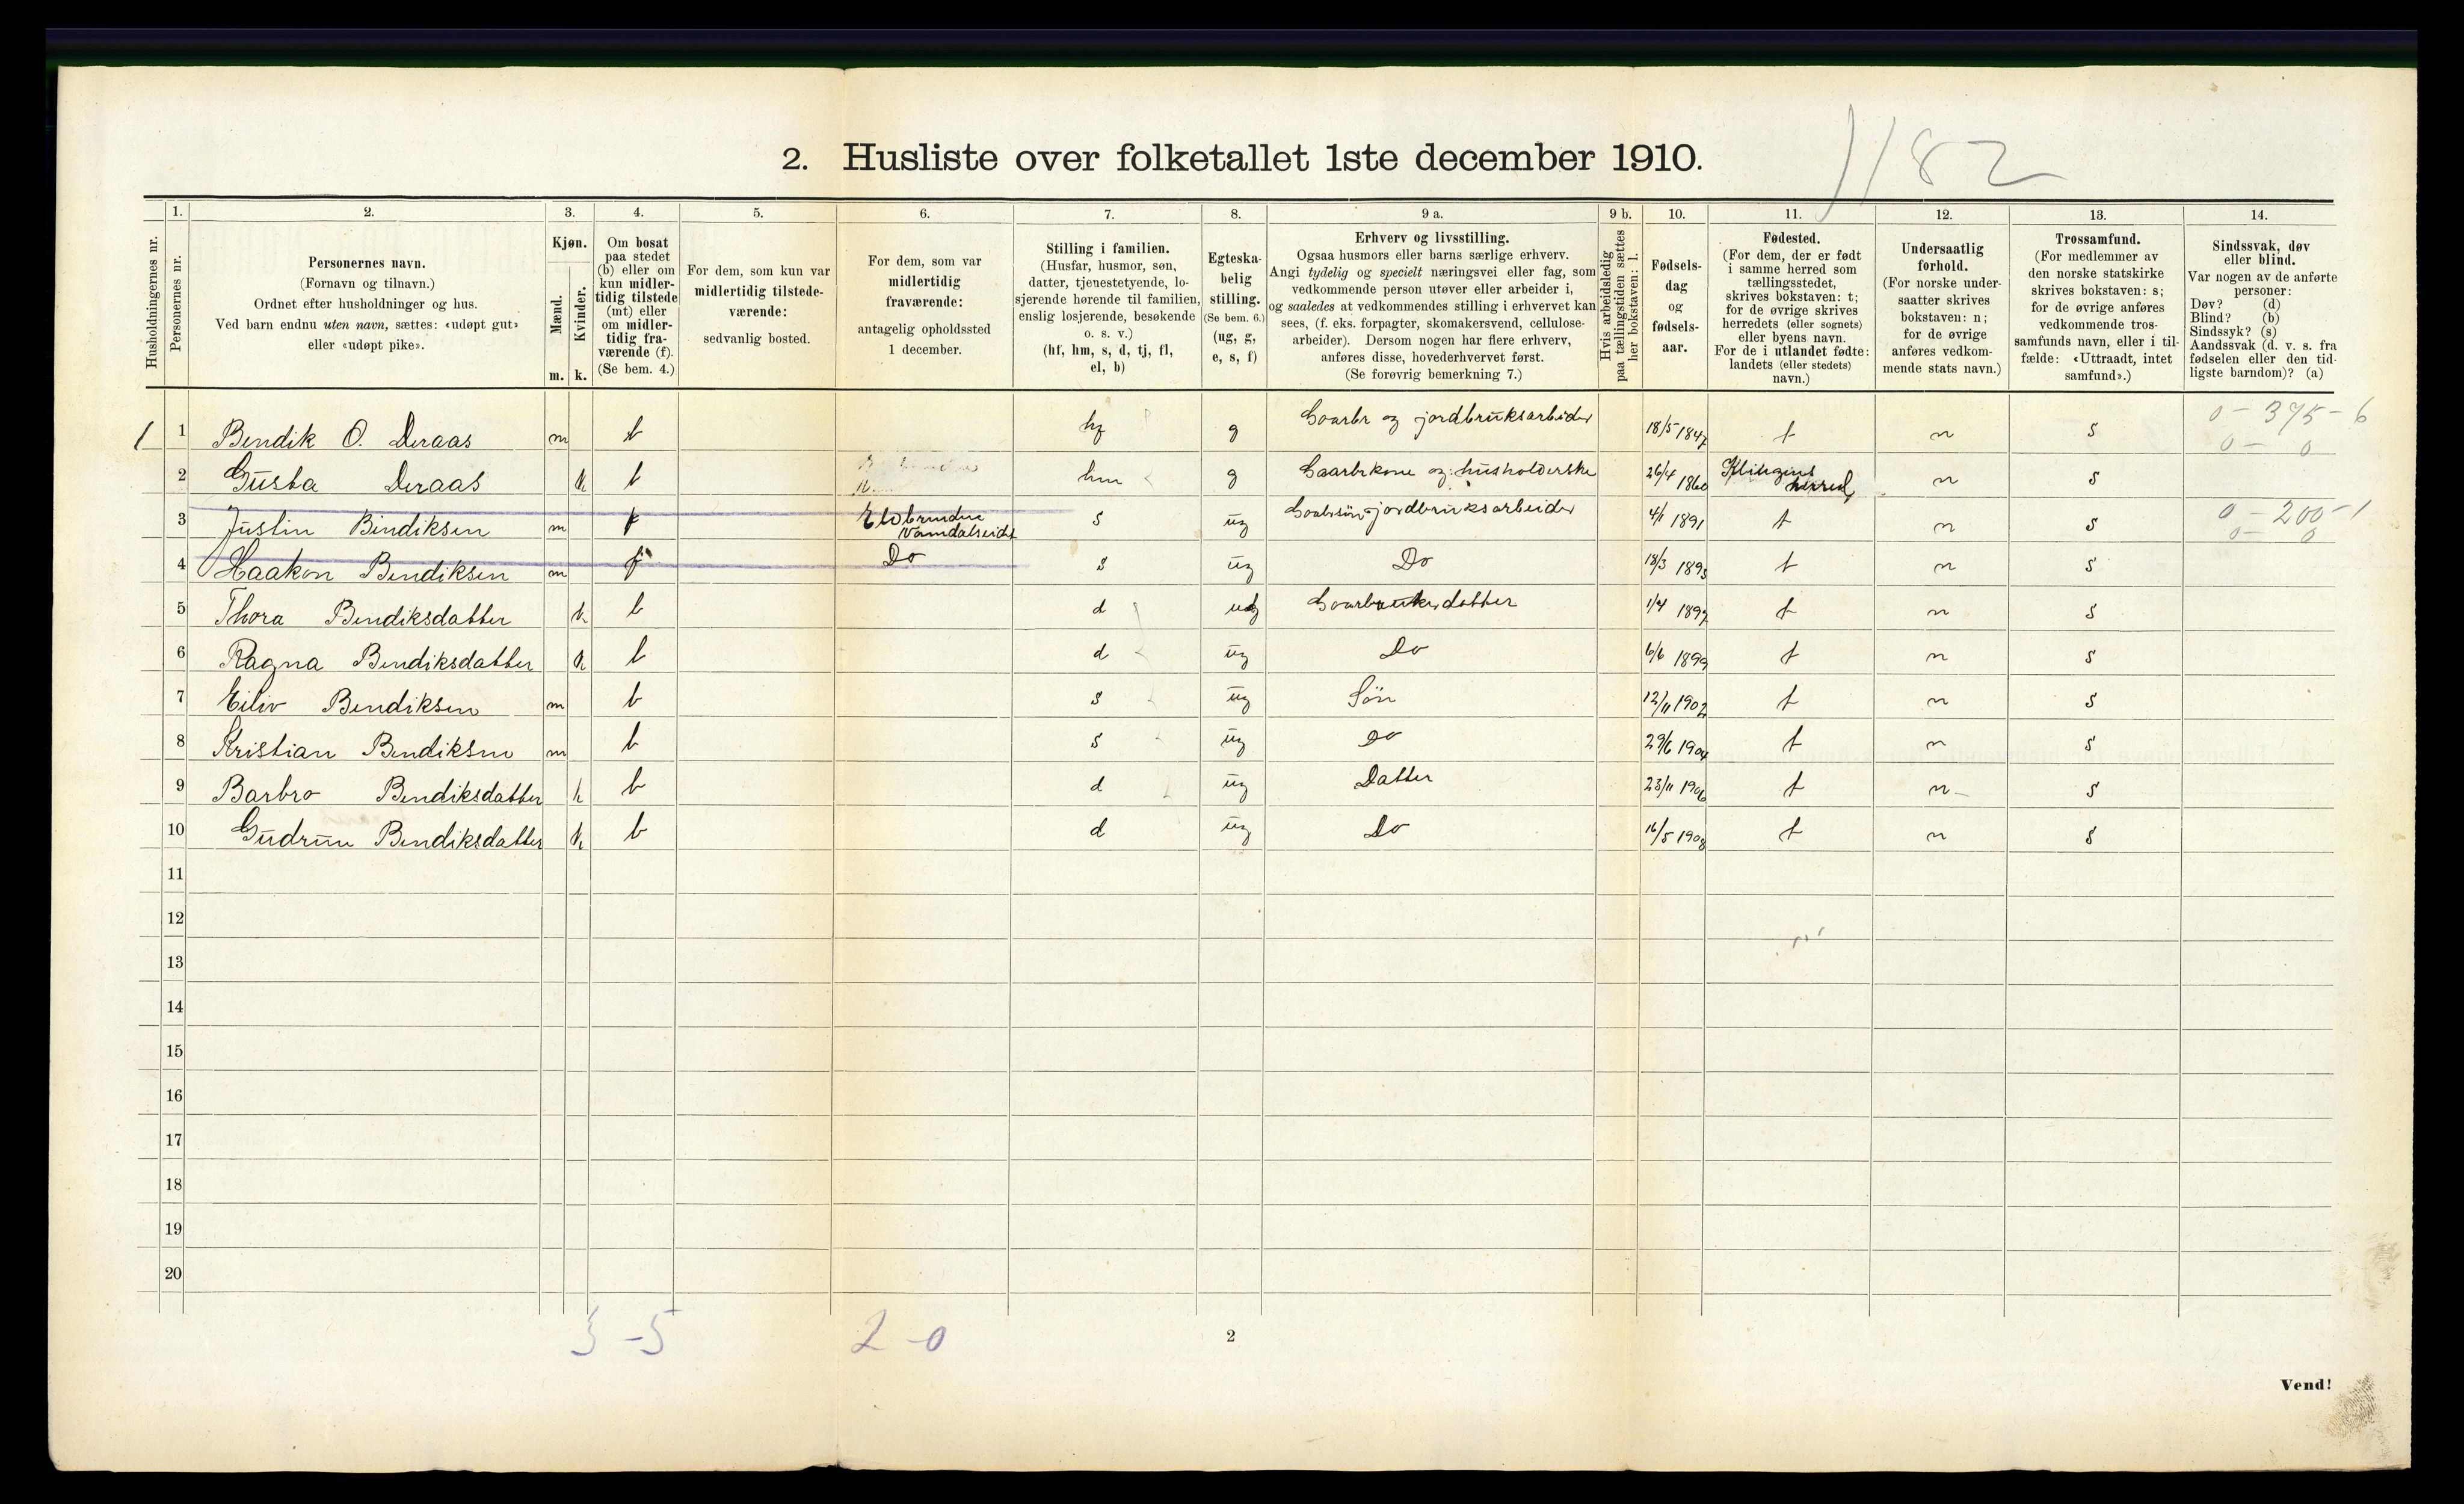 1182
2. Husliste over folketallet 1ste december 1910.
1. 2. 3. 4. 5. 6. 7. 8. 9 a. 9 b. 10. 11. 12. 13. 14.
Husholdningernes nr.
Personernes nr.
Personernes navn.
(Fornavn og tilnavn.)
Ordnet efter husholdninger og hus.
Ved barn endnu uten navn, sættes: «udøpt gut»
eller «udøpt pike».
Kjøn.
Mænd.
Kvinder.
m. k.
Om bosat
paa stedet
(b) eller om
kun midler-
tidig tilstede
(mt) eller
om midler-
tidig fra-
værende (f).
(Se bem. 4.)
For dem, som kun var
midlertidig tilstede-
værende:
sedvanlig bosted.
For dem, som var
midlertidig
fraværende:
antagelig opholdssted
1 december.
Stilling i familien.
(Husfar, husmor, søn,
datter, tjenestetyende, lo-
sjerende hørende til familien,
enslig losjerende, besøkende
o. s. v.)
(hf, hm, s, d, tj, fl,
el, b)
Egteska-
belig
stilling.
(Se bem. 6.)
(ug, g,
e, s, f)
Erhverv og livsstilling.
Ogsaa husmors eller barns særlige erhverv.
Angi tydelig og specielt næringsvei eller fag, som
vedkommende person utøver eller arbeider i,
og saaledes at vedkommendes stilling i erhvervet kan
sees, (f. eks. forpagter, skomakersvend, cellulose-
arbeider). Dersom nogen har flere erhverv,
anføres disse, hovederhvervet først.
(Se forøvrig bemerkning 7.)
Hvis arbeidsledig
paa tællingstiden sættes
her bokstaven: l.
Fødsels-
dag
og
fødsels-
aar.
Fødested.
(For dem, der er født
i samme herred som
tællingsstedet,
skrives bokstaven: t;
for de øvrige skrives
herredets (eller sognets)
eller byens navn.
For de i utlandet fødte:
landets (eller stedets)
navn.)
Undersaatlig
forhold.
(For norske under-
saatter skrives
bokstaven: n;
for de øvrige
anføres vedkom-
mende stats navn.)
Trossamfund.
(For medlemmer av
den norske statskirke
skrives bokstaven: s;
for de øvrige anføres
vedkommende tros-
samfunds navn, eller i til-
fælde: «Uttraadt, intet
samfund».)
Sindssvak, døv
eller blind.
Var nogen av de anførte
personer:
Døv? (d)
Blind? (b)
Sindssyk? (s)
Aandssvak (d. v. s. fra
fødselen eller den tid-
ligste barndom)? (a)
1 1 Bendik O. Deraas m b hf g Gaarbr og jordbruksarbeider 18/5 1847 t n s 0 - 375 - 6
0 - 0
2 Gusta Deraas k b hm g Gaarbrkone og husholderske 26/4 1860 herred n s
3 Justin Bendiksen m f s ug jordbruksarbeider 4/1 1891 t n s 0 - 200 - 1
0 - 0
4 Haakon Bendiksen m f Do s ug Do 18/3 1895 t n s
5 Thora Bendiksdatter k b d ug Gaarbrukerdatter 1/4 1897 t n s
6 Ragna Bendiksdatter k b d ug Do 6/6 1899 t n s
7 Eiliv Bendiksen m b s ug Søn 12/11 1902 t n s
8 Kristian Bendiksen m b s ug Do 29/6 1904 t n s
9 Barbro Bendiksdatter k b d ug Datter 23/11 1906 t n s
10 Gudrun Bendiksdatter k b d ug Do 16/5 1908 t n s
11
12
13
14
15
16
17
18
19
20
3 - 5 2 - 0
2
Vend!